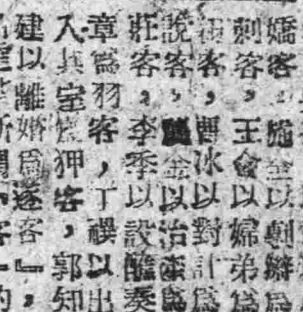 嬌客，施全以爲
刺客，王會以婦弟爲
客，曹冰以對計爲
說客，金以治產爲
莊客，李季以設醮奏
章爲羽客，丁禩以出
入其室爲狎客，郭知
建以離婚爲逐客』，